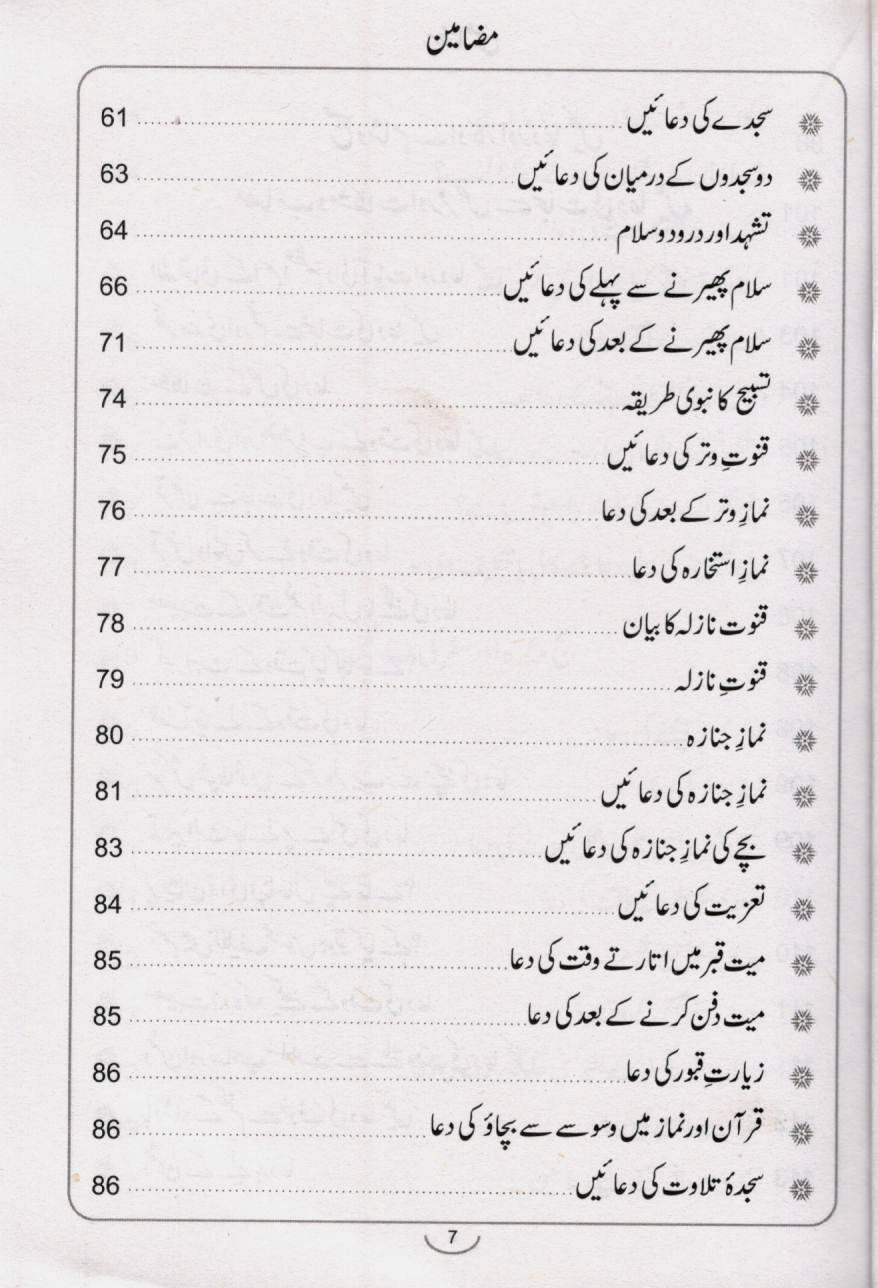 مضامین
سجدے کی دعائیں 61
دو سجدوں کے درمیان کی دعائیں 63
تشہد اور درود و سلام 64
سلام پھیرنے سے پہلے کی دعائیں 66
سلام پھیرنے کے بعد کی دعائیں 71
تسبیح کا نبوی طریقہ 74
قنوتِ وتر کی دعائیں 75
نمازِ وتر کے بعد کی دعا 76
نمازِ استخارہ کی دعا 77
قنوت نازلہ کا بیان 78
قنوتِ نازلہ 79
نمازِ جنازہ 80
نمازِ جنازہ کی دعائیں 81
بچے کی نمازِ جنازہ کی دعائیں 83
تعزیت کی دعائیں 84
میت قبر میں اتارتے وقت کی دعا 85
میت دفن کرنے کے بعد کی دعا 85
زیارتِ قبور کی دعا 86
قرآن اور نماز میں وسوسے سے بچاؤ کی دعا 86
سجدۂ تلاوت کی دعائیں 86
7